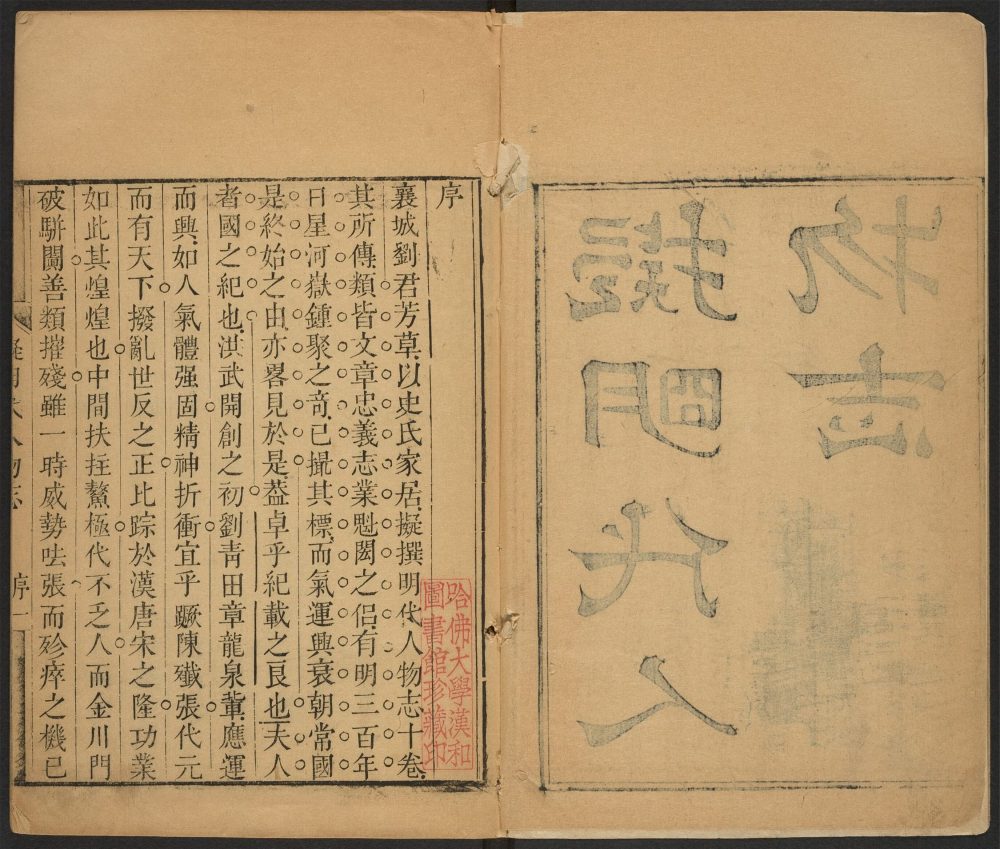 擬明代人
物志
序
襄城劉君芳草以史氏家居擬撰明代人物志十卷
其所傳類皆文章忠義志業魁閎之侶有明三百年
日星河嶽鍾聚之奇已撮其標而氣運興衰朝常國
是終始之由亦畧見於是葢卓乎紀載之良也夫人
者國之紀也洪武開創之初劉青田章龍泉軰應運
而興如人氣體强固精神折衝宜乎蹶陳殲張代元
而有天下撥亂世反之正比踪於漢唐宋之隆功業
如此其煌煌也中間扶拄鰲極代不乏人而金川門
破駢闐善類摧殘雖一時威勢呿張而殄瘁之機已
擬明代人物志 序 一
哈佛大學漢和
圖書館珍藏印